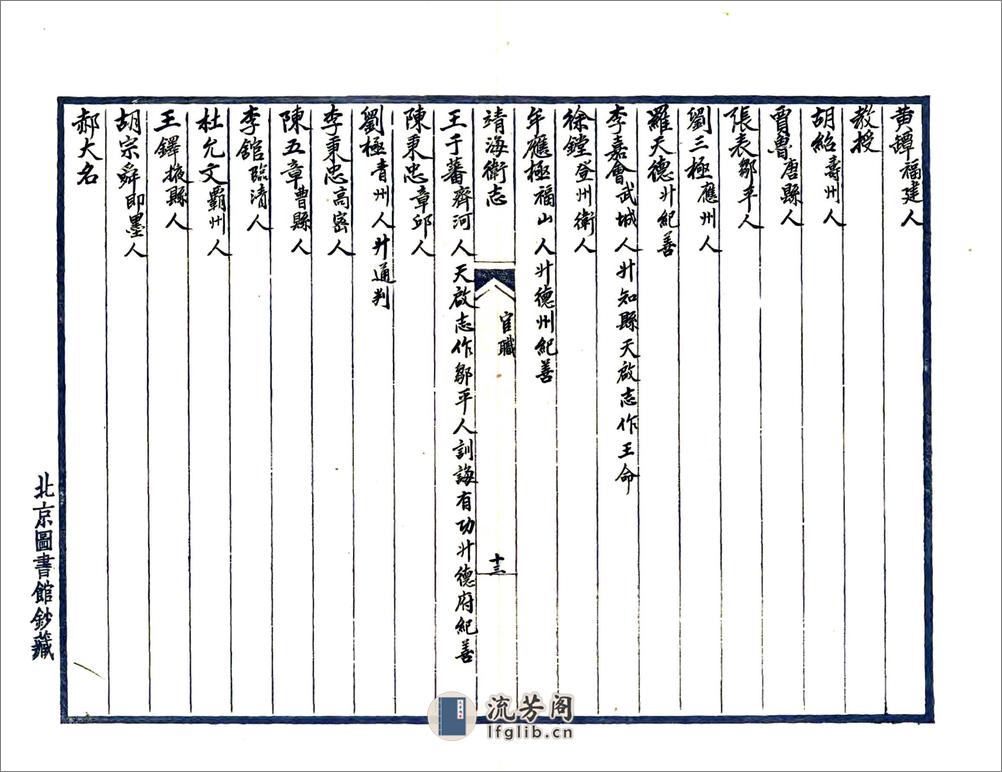 黄鐔福建人
教授
胡紹壽州人
賈魯唐縣人
張表鄒平人
劉三極應州人
羅天德廾紀善
李嘉會武城人廾知縣天啟志作王命
徐鏜登州衛人
牟應極福山人廾德州紀善
靖海衛志
官職
十三
王于蕃齊河人天啟志作鄒平人訓誨有功廾德府紀善
陳秉忠章邱人
劉極青州人廾通判
李秉忠高密人
陳五章曹縣人
李館臨清人
杜允文霸州人
王鐸掖縣人
胡宗舜即墨人
郝大名
北京圖書館鈔藏
流芳阁
lfglib.cn